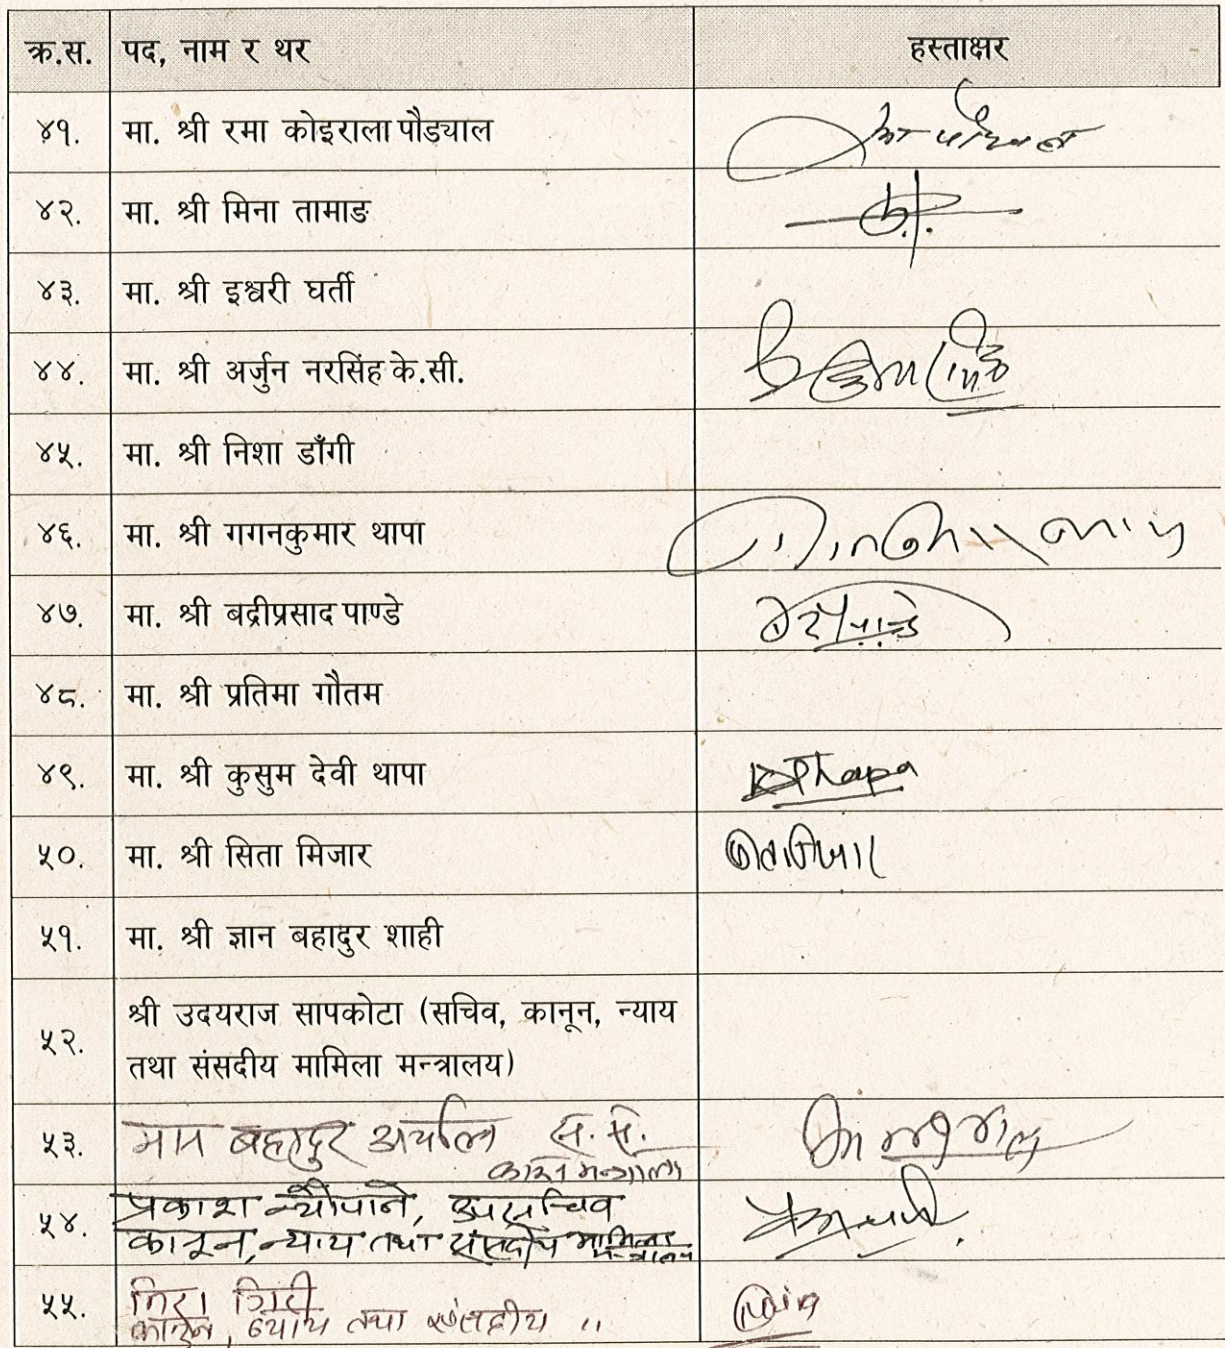 क्र.स. पद, नाम र थर हस्ताक्षर
४१. मा. श्री रमा कोइराला पौड्याल
४२. मा. श्री मिना तामाङ
४३. मा. श्री इश्वरी घर्ती
४४. मा. श्री अर्जुन नरसिंह के.सी.
४५. मा. श्री निशा डाँगी
४६. मा. श्री गगनकुमार थापा
४७. मा. श्री बद्रीप्रसाद पाण्डे
४८. मा. श्री प्रतिमा गौतम
४९. मा. श्री कुसुम देवी थापा
५०. मा. श्री सिता मिजार
५१. मा. श्री ज्ञान बहादुर शाही
श्री उदयराज सापकोटा (सचिव, कानून, न्याय
५२.
तथा संसदीय मामिला मन्त्रालय)
५३. मान बहादुर अर्याल
प्रकाश न्यौपाने, उपसचिव
५४.
कानून, न्याय तथा संसदीय मामिला
मन्त्रालय
गिरी
५५.
कानून, न्याय तथा संसदीय ,,